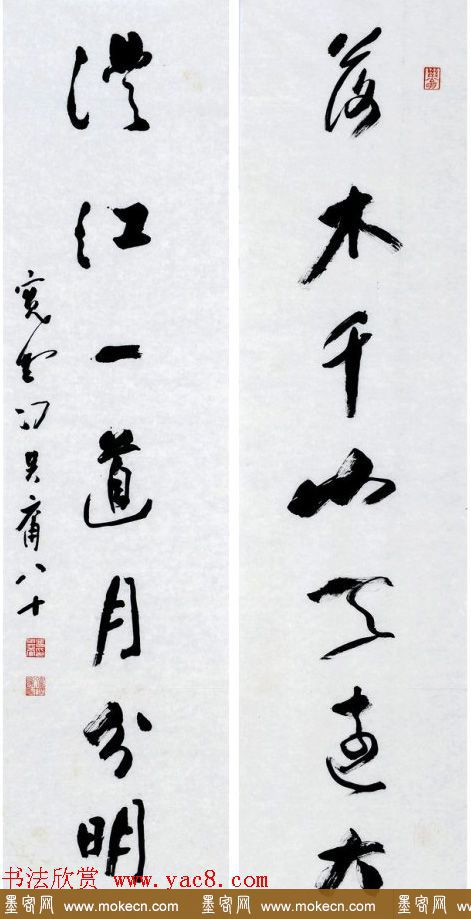 落木千山天遠大
澄江一道月分明
寬堂馮其庸八十
书法欣赏 www.yac8.com
墨客网 www.mokecn.com 墨客网 www.mokecn.com 墨客网 www